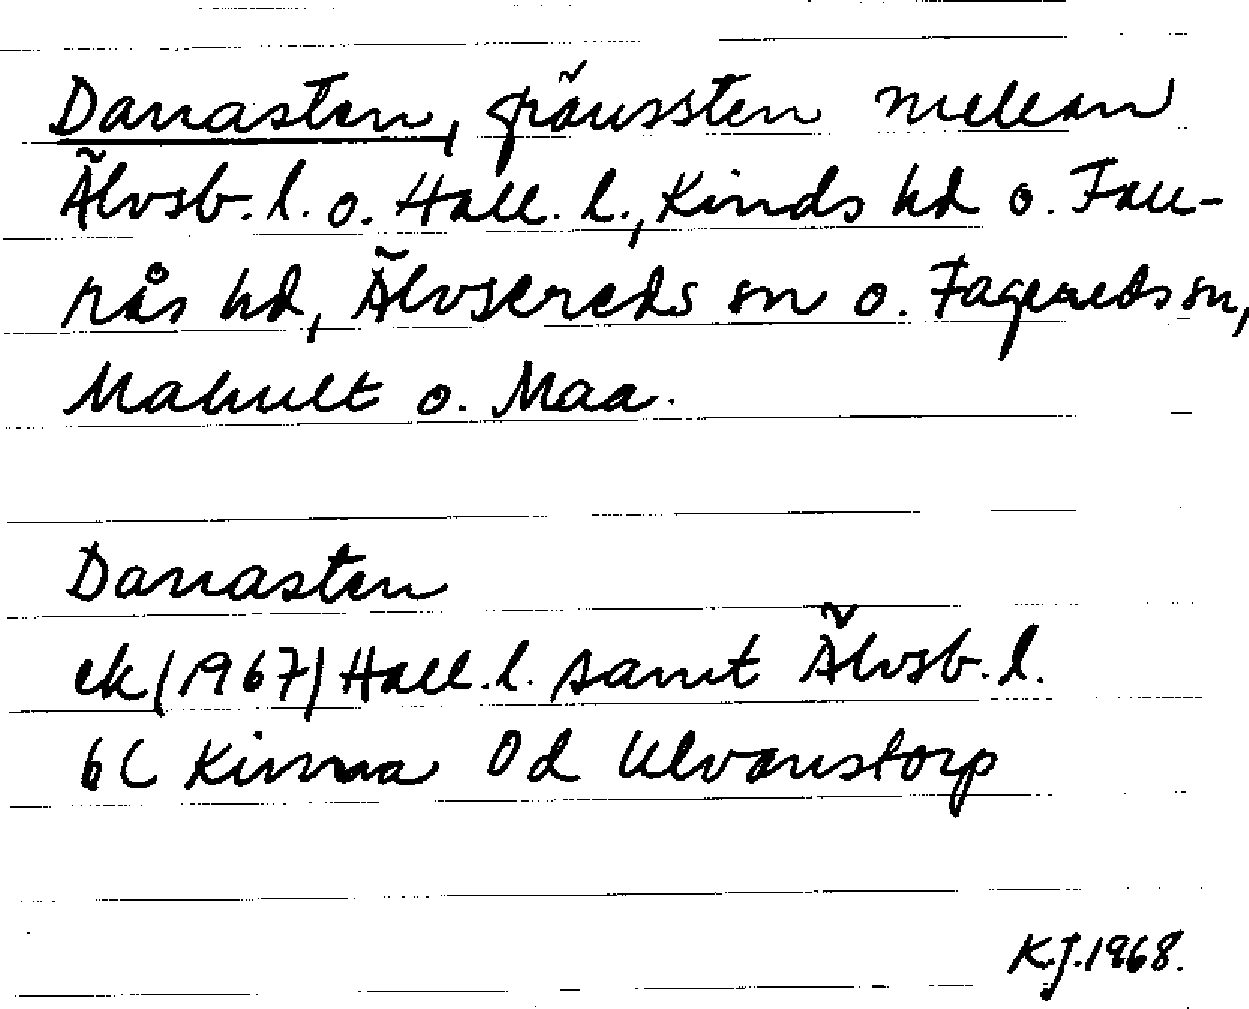 Danasten, gränssten mellan
Älvsb. l. o. Hall. l., Kinds hd o. Fau-
rås hd, Älvsereds sn o. Fagereds sn,
Mahult o. Maa.
Danasten
ek (1967) Hall. l. samt Älvsb. l.
6C Kinna 0d Ulvanstorp
K.J. 1968.